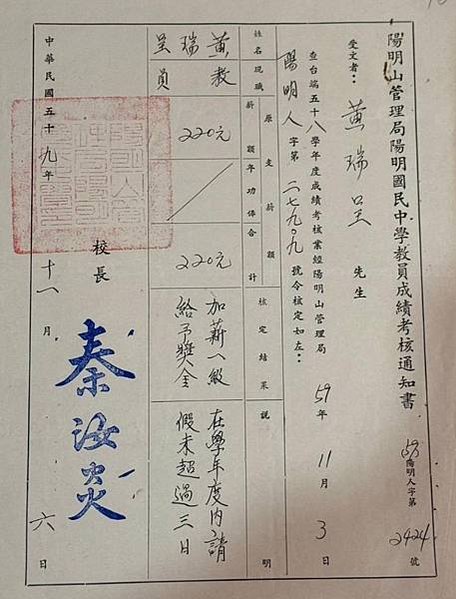 陽明山管理局陽明國民中學教員成績考核通知書
59陽明人字第2424號
受文者:黃瑞呈 先生
查台端五十八學年度成績考核業經陽明山管理局59年11月3日
陽明人字第二七九〇九號令核定如左:
姓名 現職 原支薪額 薪額 年功俸 合計 核定結果 說明
黃瑞呈 教員 220元 220元 加薪一級給予獎金 在學年度內請假未超過三日
校長 秦汝炎
中華民國五十九年十一月六日